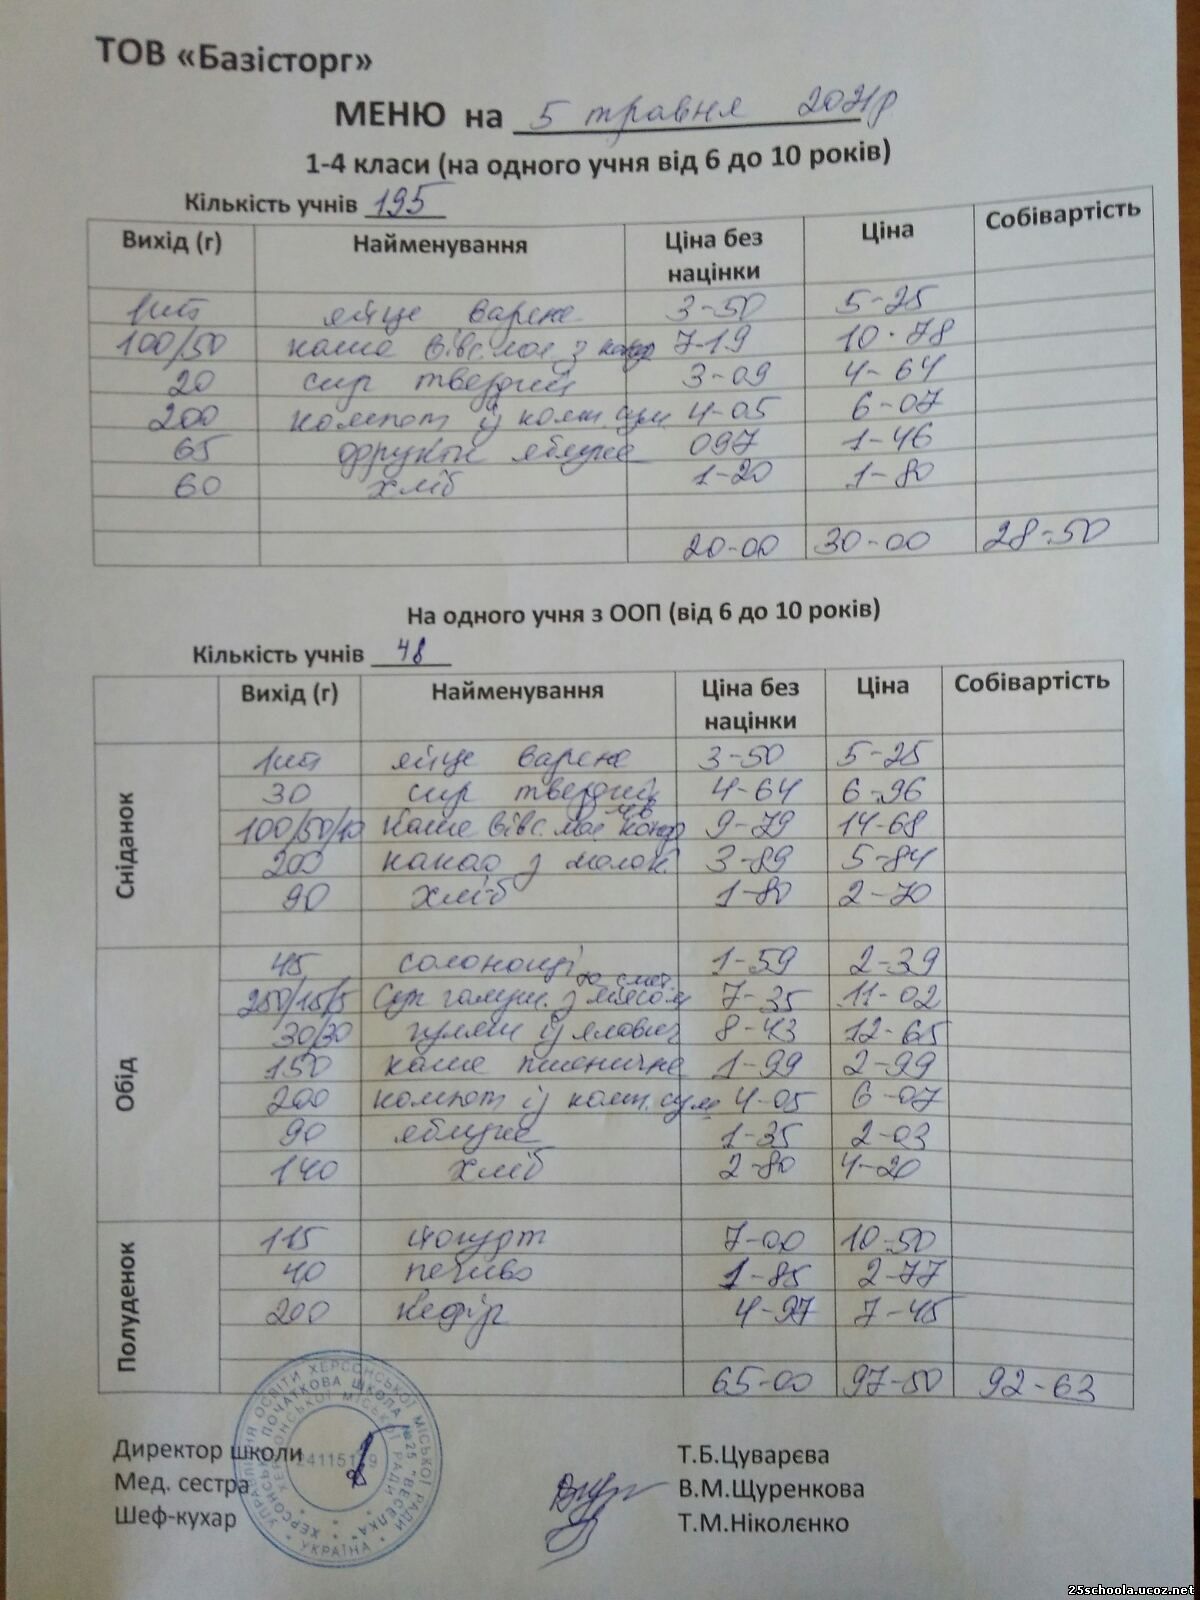 ТОВ «Базісторг»
МЕНЮ на 5 травня 2021р
1-4 класи (на одного учня від 6 до 10 років)
Кількість учнів 195
Вихід (г) Найменування Ціна без націнки Ціна Собівартість
1шт яйце варене 3-50 5-25
100/50 каша вівсяная з 7-19 10-78
20 сир твердий 3-09 4-64
200 компот із 4-05 6-07
65 фрукти яблуко 097 1-46
60 хліб 1-20 1-80
20-00 30-00 28-50
На одного учня з ООП (від 6 до 10 років)
Кількість учнів 48
Вихід (г) Найменування Ціна без націнки Ціна Собівартість
Сніданок
1шт яйце варене 3-50 5-25
30 сир твердий 4-64 6-96
100/50/10 Каша 9-79 14-68
200 какао з молок. 3-89 5-84
90 хліб 1-80 2-70
Обід
45 1-59 2-39
250/15/5 Суп галуш. з мясом 7-35 11-02
30/30 гуляш із ялович 8-43 12-65
150 каша пшенична 1-99 2-99
200 компот із 4-05 6-07
90 яблуко 1-35 2-03
140 хліб 2-80 4-20
Полуденок
115 йогурт 7-00 10-50
40 печиво 1-85 2-77
200 Кефір 4-97 7-45
65-00 97-50 92-63
Директор школи Т.Б.Цуварєва
Мед. сестра В.М.Щуренкова
Шеф-кухар Т.М.Ніколєнко
УПРАВЛІННЯ ОСВІТИ ХЕРСОНСЬКОЇ МІСЬКОЇ РАДИ
ПОЧАТКОВА ШКОЛА №25 "ВЕСЕЛКА"
ХЕРСОНСЬКОЇ МІСЬКОЇ РАДИ
УКРАЇНА
25schoola.ucoz.net